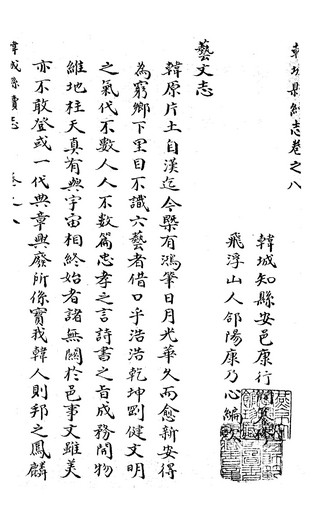 韓城縣續志卷之八
韓城知縣安邑康行
飛浮山人郃陽康乃心編
藝文志
韓原片土自漢迄今槩有鴻筆日月光華久而愈新安得
為窮鄉下里目不識六藝者借口乎浩浩乾坤剛健文明
之氣代不數人人不數篇忠孝之言詩書之旨成務開物
維地柱天真有與宇宙相終始者諸無關於邑事文雖美
亦不敢登或一代典章興廢所係實我韓人則邦之鳳麟
韓城縣續志 卷之八